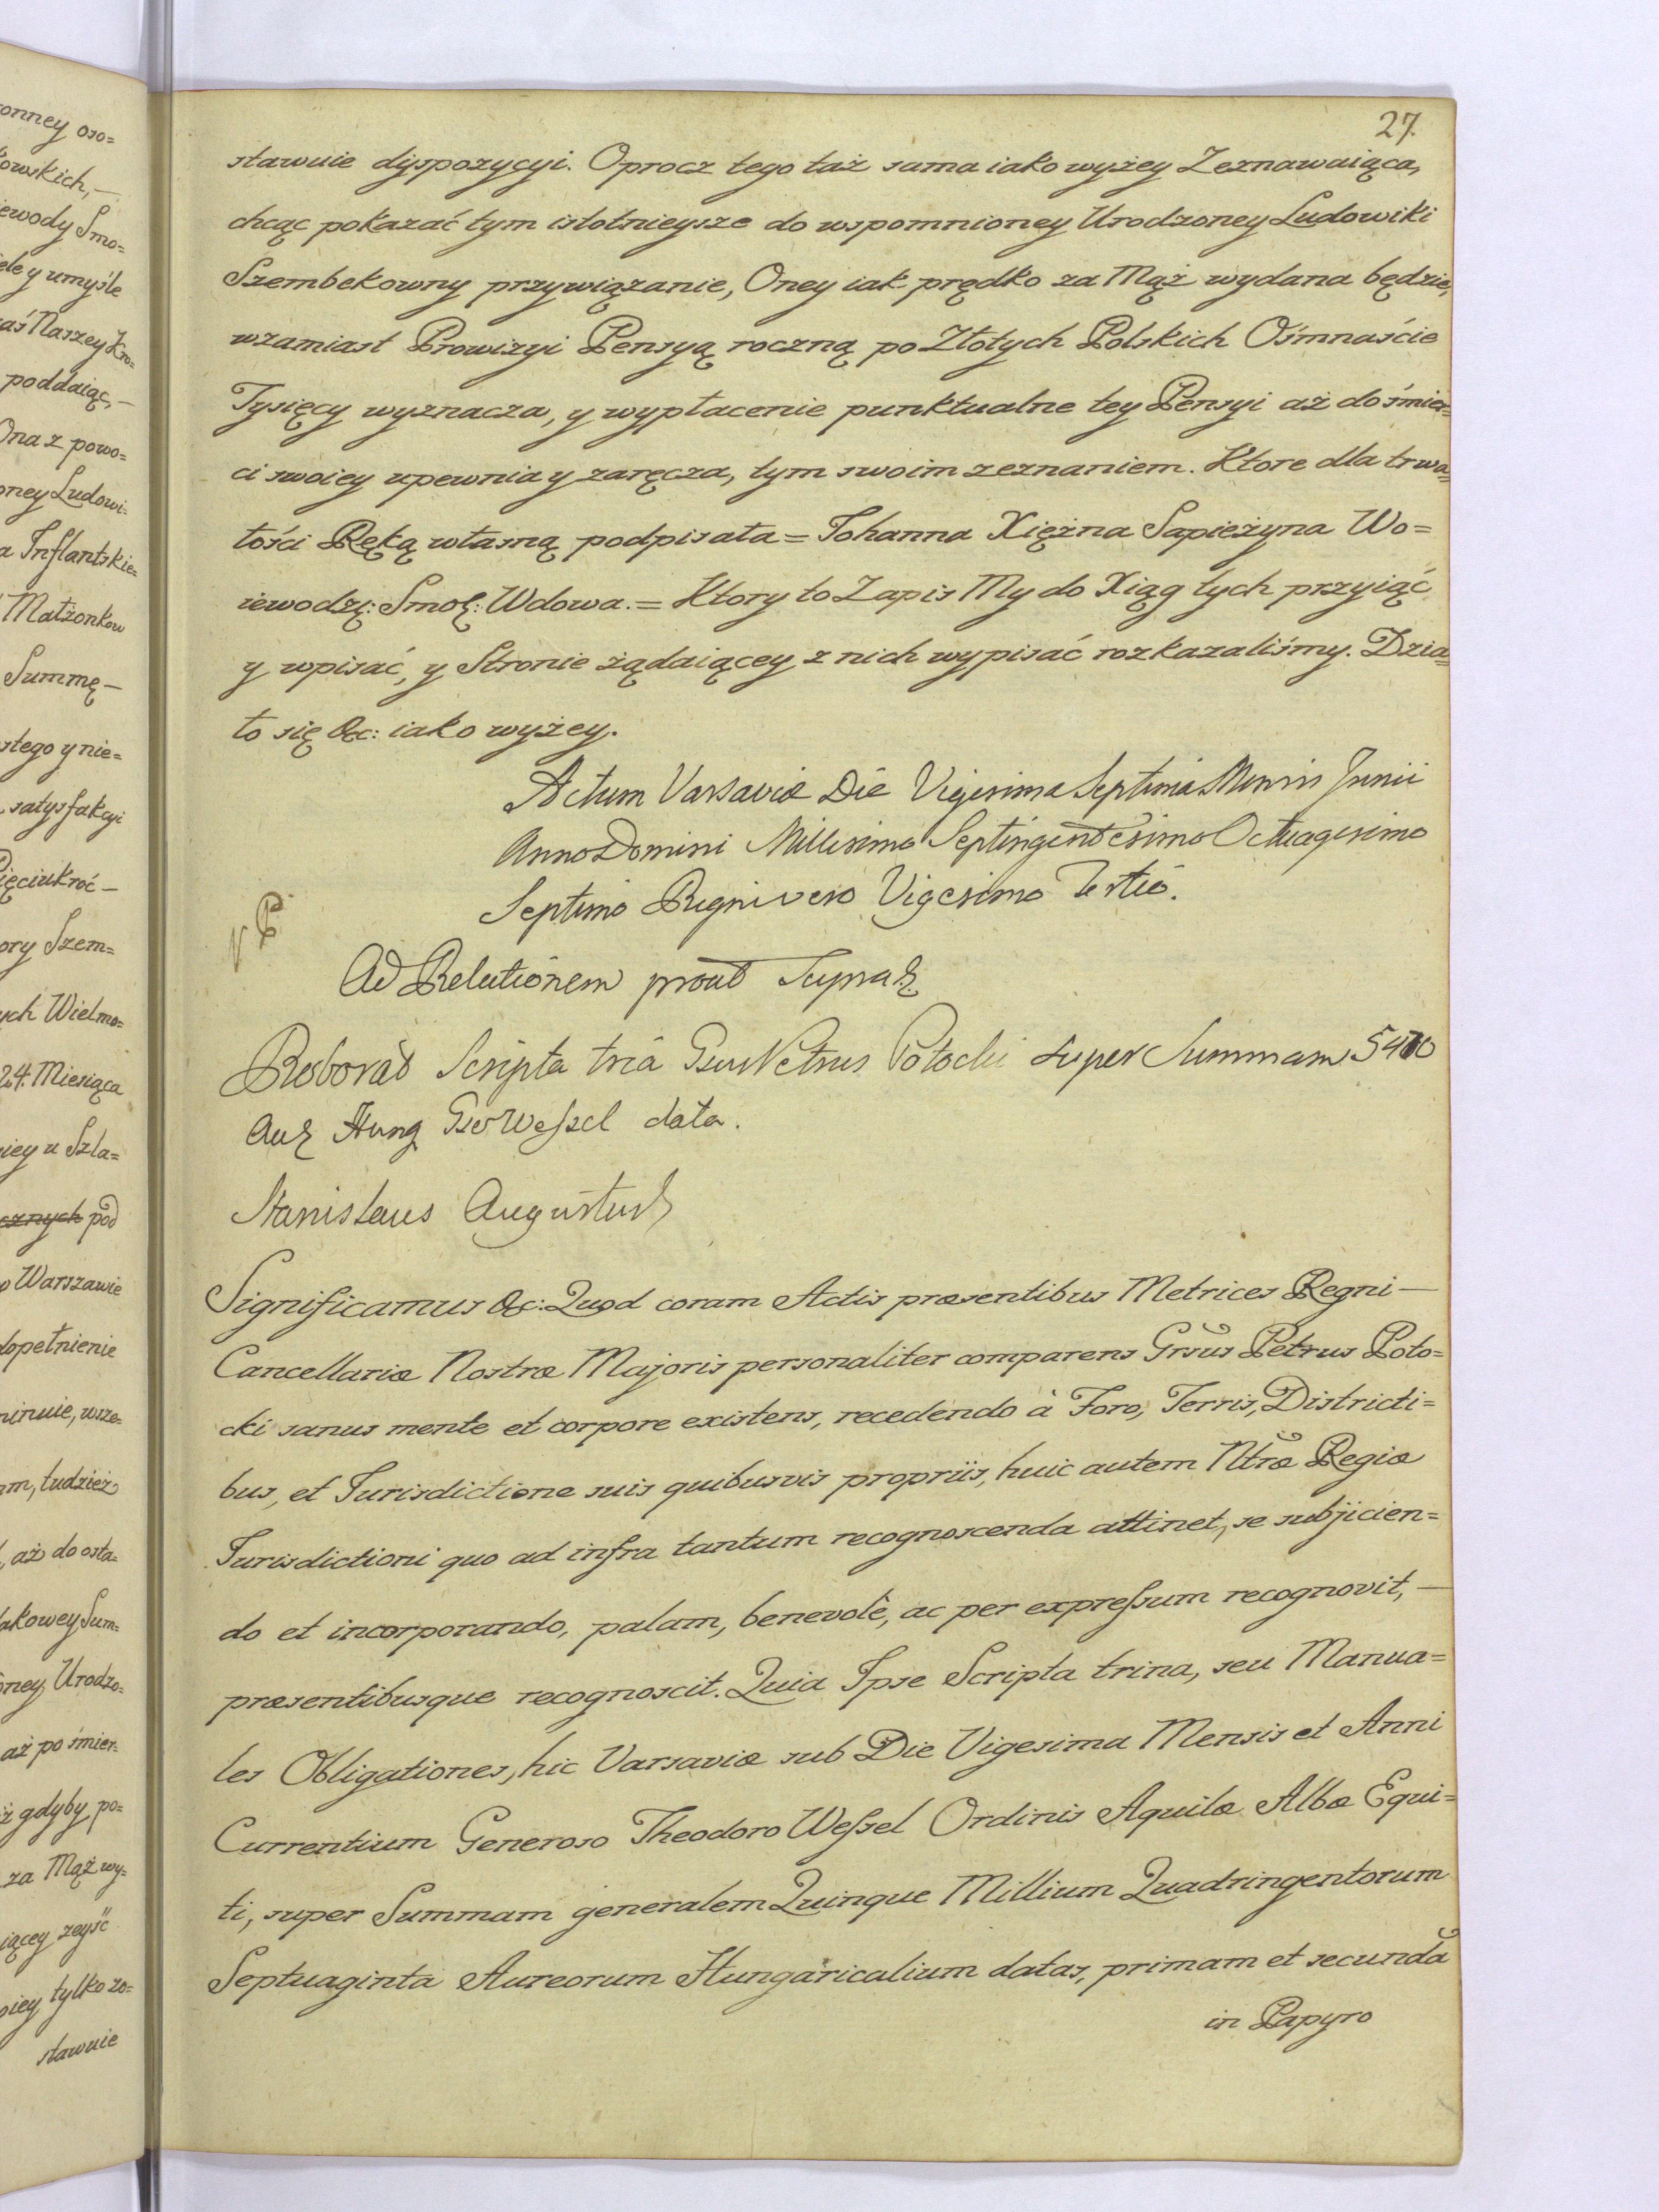 onney oso=
owskich,—
ewody Smo=
ele y umyśle
aś Naszey Kro=
poddaiąc,—
Ona z powo=
oney Ludowi=
a Inflantskie=
Małżonkow
Summę—
stego y nie=
satysfakcyi
Pięciukroć—
ory Szem=
ych Wielmo=
24. Miesiąca
niey u Szla=
cznych pod
o Warszawie
dopełnienie
ninuie, wsze=
am, tudzież
, aż do osta=
akowey Sum=
oney Urodzo=
aż po śmier=
ż gdyby po=
za Mąż wy=
iącey zeyść
piey tylko zo=
stawuie
27.
stawuie dyspozycyi. Oprocz tego taż sama iako wyżey Zeznawaiąca,
chcąc pokazać tym istotnieysze do wspomnioney Urodzoney Ludowiki
Szembekowny przywiązanie, Oney iak prędko za Mąż wydana będzie,
wzamiast Prowizyi Pensyą roczną po Złotych Polskich Ośmnaście
Tysięcy wyznacza, y wypłacenie punktualne tey Pensyi aż do śmier=
ci swoiey upewnia y zaręcza, tym swoim zeznaniem. Ktore dla trwa=
łości Ręką własną podpisała = Johanna Xiężna Sapieżyna Wo=
iewodz: Smol: Wdowa. = Ktory to Zapis My do Xiąg tych przyiąć
y wpisać, y Stronie żądaiącey z nich wypisać rozkazaliśmy. Dzia=
ło się &c: iako wyżey.
Actum Varsaviæ Die Vigesima Septima Mensis Junii
Anno Domini Millesimo Septingentesimo Octuagesimo
Septimo Regni vero Vigesimo Tertio.
Ad Relationem prout Supra
Roborat Scripta tria Gsus Petrus Potocki super Summam 5470
Aur Hung Gso Weſsel data.
Stanislaus Augustus
Significamus &c: Quod coram Actis præsentibus Metrices Regni —
Cancellariæ Nostræ Majoris personaliter comparens Grsus Petrus Poto=
cki sanus mente et corpore existens, recedendo à Foro, Terris, Districti=
bus, et Jurisdictione suis quibusvis propriis, huic autem Ntræ Regiæ
Jurisdictioni quo ad infra tantum recognoscenda attinet, se subjicien=
do et incorporando, palam, benevolè, ac per expreſsum recognovit, —
præsentibusque recognoscit. Quia Ipse Scripta trina, seu Manua=
les Obligationes, hic Varsaviæ sub Die Vigesima Mensis et Anni
Currentium Generoso Theodoro Weſsel Ordinis Aquilæ Albæ Equi=
ti, super Summam generalem Quinque Millium Quadringentorum
Septuaginta Aureorum Hungaricalium datas, primam et secundã
in Papyro